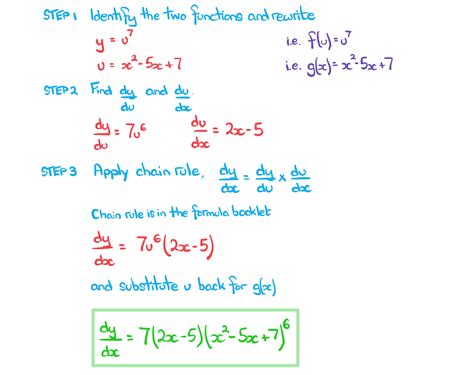 STEP 1 Identify the two functions and rewrite
y = u⁷ i.e. f(u) = u⁷
u = x² - 5x + 7 i.e. g(x) = x² - 5x + 7
STEP 2 Find dy/du and du/dx.
dy/du = 7u⁶ du/dx = 2x - 5
STEP 3 Apply chain rule, dy/dx = dy/du × du/dx
Chain rule is in the formula booklet
dy/dx = 7u⁶(2x - 5)
and substitute u back for g(x)
dy/dx = 7(2x - 5)(x² - 5x + 7)⁶